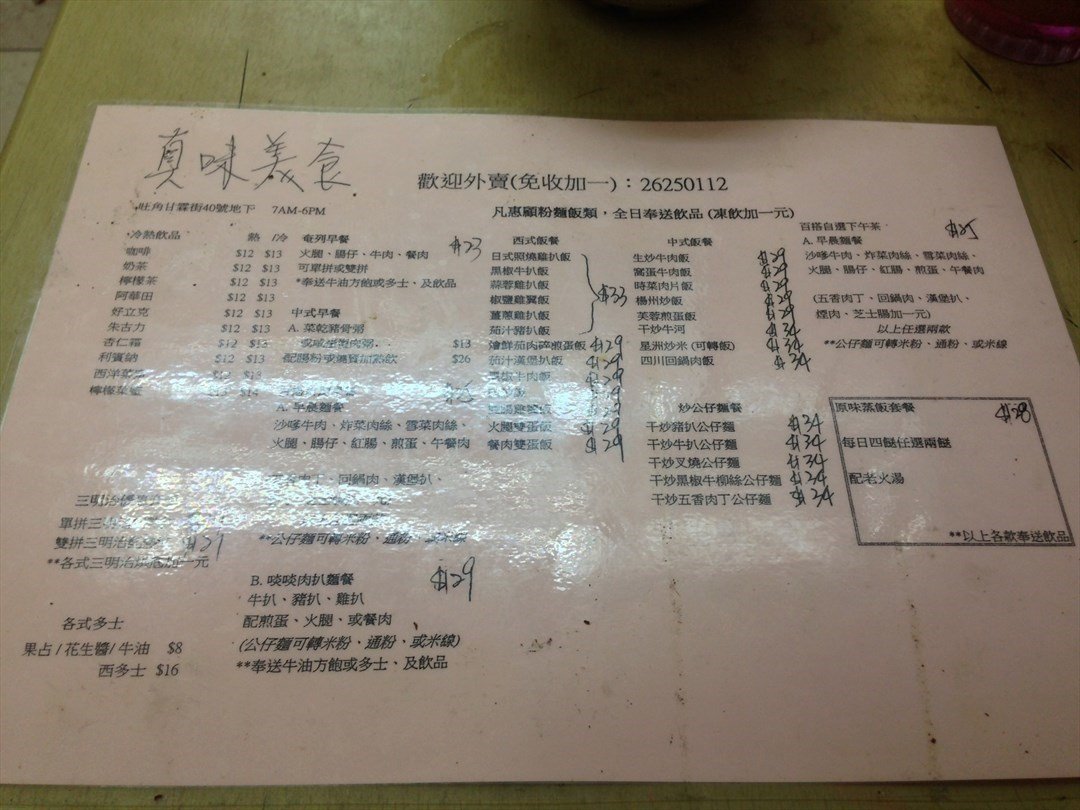 真味美食
歡迎外賣(免收加一)：26250112
旺角甘霖街40號地下 7AM-6PM
凡惠顧粉麵飯類，全日奉送飲品 (凍飲加一元)
冷熱飲品 熱 / 冷
咖啡 $12 $13
奶茶 $12 $13
檸檬茶 $12 $13
阿華田 $12 $13
好立克 $12 $13
朱古力 $12 $13
杏仁霜 $12 $13
利賓納 $12 $13
西洋菜 $12 $13
檸檬菜蜜 $14
奄列早餐 $23
火腿、腸仔、牛肉、餐肉
可單拼或雙拼
*奉送牛油方飽或多士、及飲品
中式早餐
A. 菜乾豬骨粥
$13
配腸粉或 $26
A. 早晨麵餐
沙嗲牛肉、炸菜肉絲、雪菜肉絲、
火腿、腸仔、紅腸、煎蛋、午餐肉
回鍋肉、漢堡扒、
**公仔麵可轉米粉、通粉、或米線
B. 啖啖肉扒麵餐 $29
牛扒、豬扒、雞扒
配煎蛋、火腿、或餐肉
(公仔麵可轉米粉、通粉、或米線)
**奉送牛油方飽或多士、及飲品
三明治
單拼三
雙拼三明治
**各式三明治 加一元
各式多士
果占 / 花生醬/ 牛油 $8
西多士 $16
西式飯餐
日式照燒雞扒飯
黑椒牛扒飯
蒜蓉雞扒飯
椒鹽雞翼飯
薑蔥雞扒飯
茄汁豬扒飯
$33
鮮茄肉碎煎蛋飯 $29
茄汁漢堡扒飯 $29
黑椒牛肉飯 $29
$29
火腿雙蛋飯 $29
餐肉雙蛋飯 $29
中式飯餐
生炒牛肉飯 $29
窩蛋牛肉飯 $29
時菜肉片飯 $29
楊州炒飯 $29
芙蓉煎蛋飯 $29
干炒牛河 $34
星洲炒米 (可轉飯) $34
四川回鍋肉飯 $34
炒公仔麵餐
干炒豬扒公仔麵 $34
干炒牛扒公仔麵 $34
干炒叉燒公仔麵 $34
干炒黑椒牛柳絲公仔麵 $34
干炒五香肉丁公仔麵 $34
百搭自選下午茶 $25
A. 早晨麵餐
沙嗲牛肉、炸菜肉絲、雪菜肉絲、
火腿、腸仔、紅腸、煎蛋、午餐肉
(五香肉丁、回鍋肉、漢堡扒、
煙肉、芝士腸加一元)
以上任選兩款
**公仔麵可轉米粉、通粉、或米線
原味蒸飯套餐 $28
每日四餸任選兩餸
配老火湯
**以上各款奉送飲品